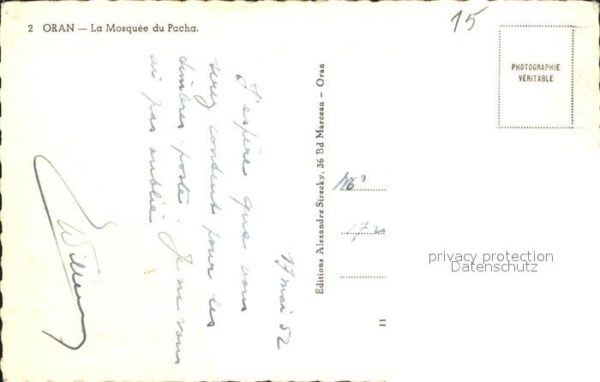 2 ORAN — La Mosquée du Pacha.
15
PHOTOGRAPHIE
VÉRITABLE
17 mai 52
J'espère que vous
serez content pour les
timbres poste. Je ne vous
ai pas oublié
Editions Alexandre Sirecky, 36 Bd Marceau — Oran
privacy protection
Datenschutz